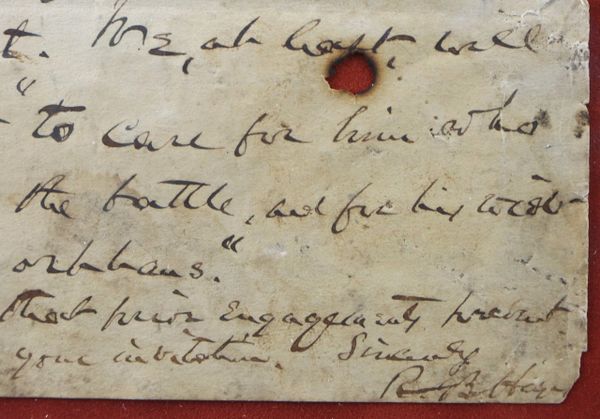 t. We, at least, will
"to care for him who
the battle, and for his wido
orphans."
that prior engagements prevent
your invitation. Sincerely
R. B. Hay